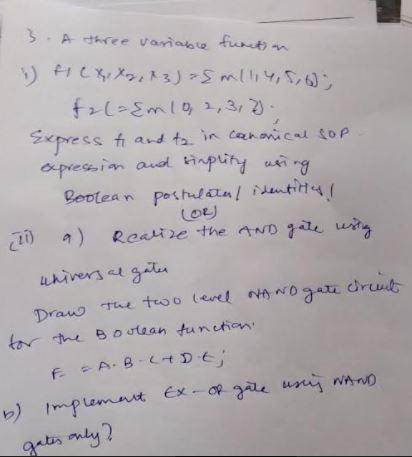 3. A three variable function
i) f1 (x1, x2, x3) = Σ m(1,4,5,6);
f2(= Σm(0, 2, 3, 7).
Express f1 and f2 in canonical SOP
expression and simplity using
Boolean postulates/ identities/
(OR)
(ii) a) Realize the AND gate using
universal gates
Draw the two level NAND gate circuit
for the Boolean function:
F = A.B.C + D.E;
b) Implement EX-OR gate using NAND
gates only?